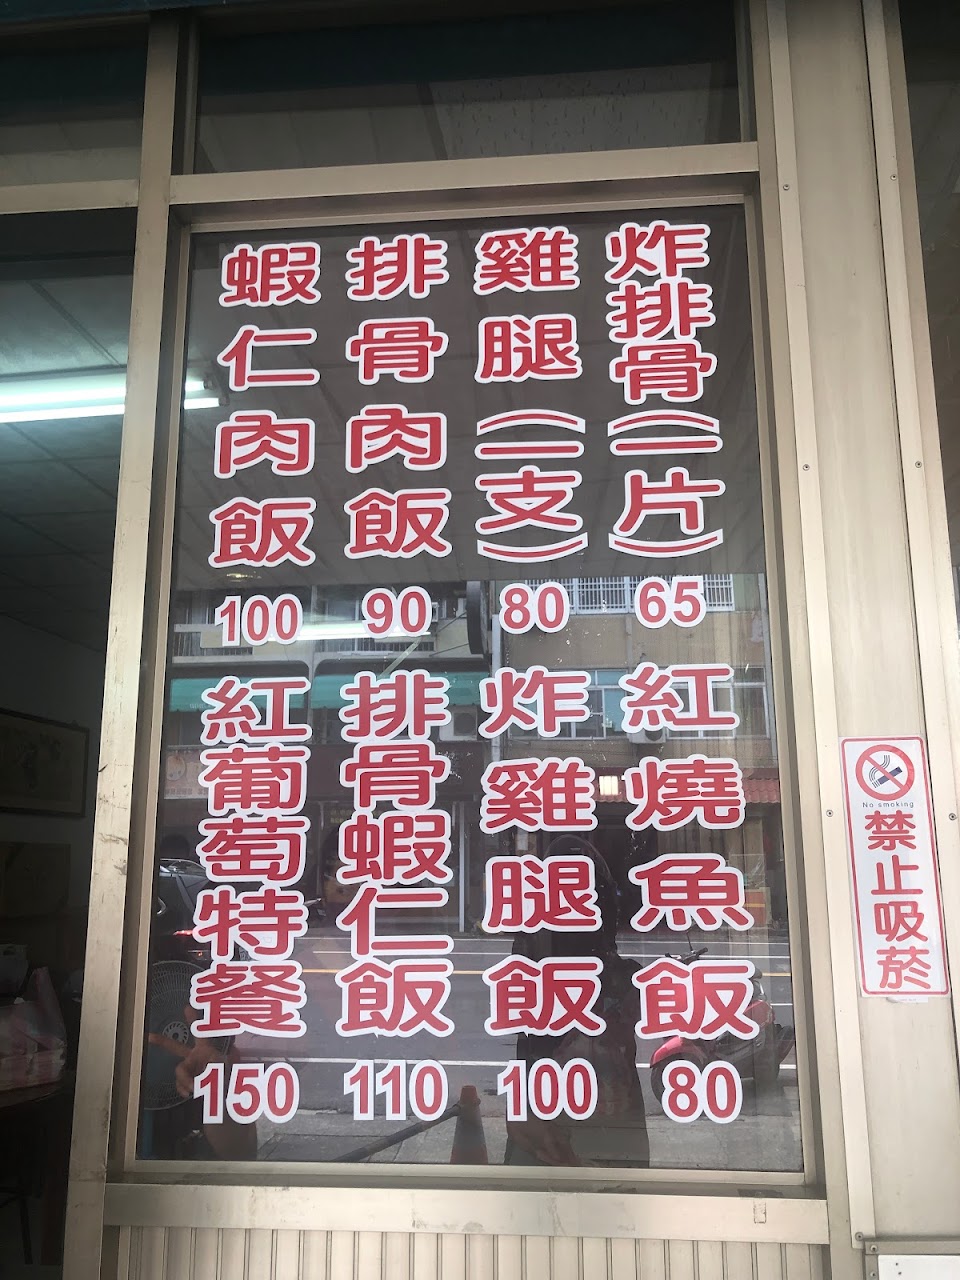 炸排骨(一片)
65
雞腿(一支)
80
排骨肉飯
90
蝦仁肉飯
100
紅燒魚飯
80
炸雞腿飯
100
排骨蝦仁飯
110
紅葡萄特餐
150
No smoking
禁止吸菸